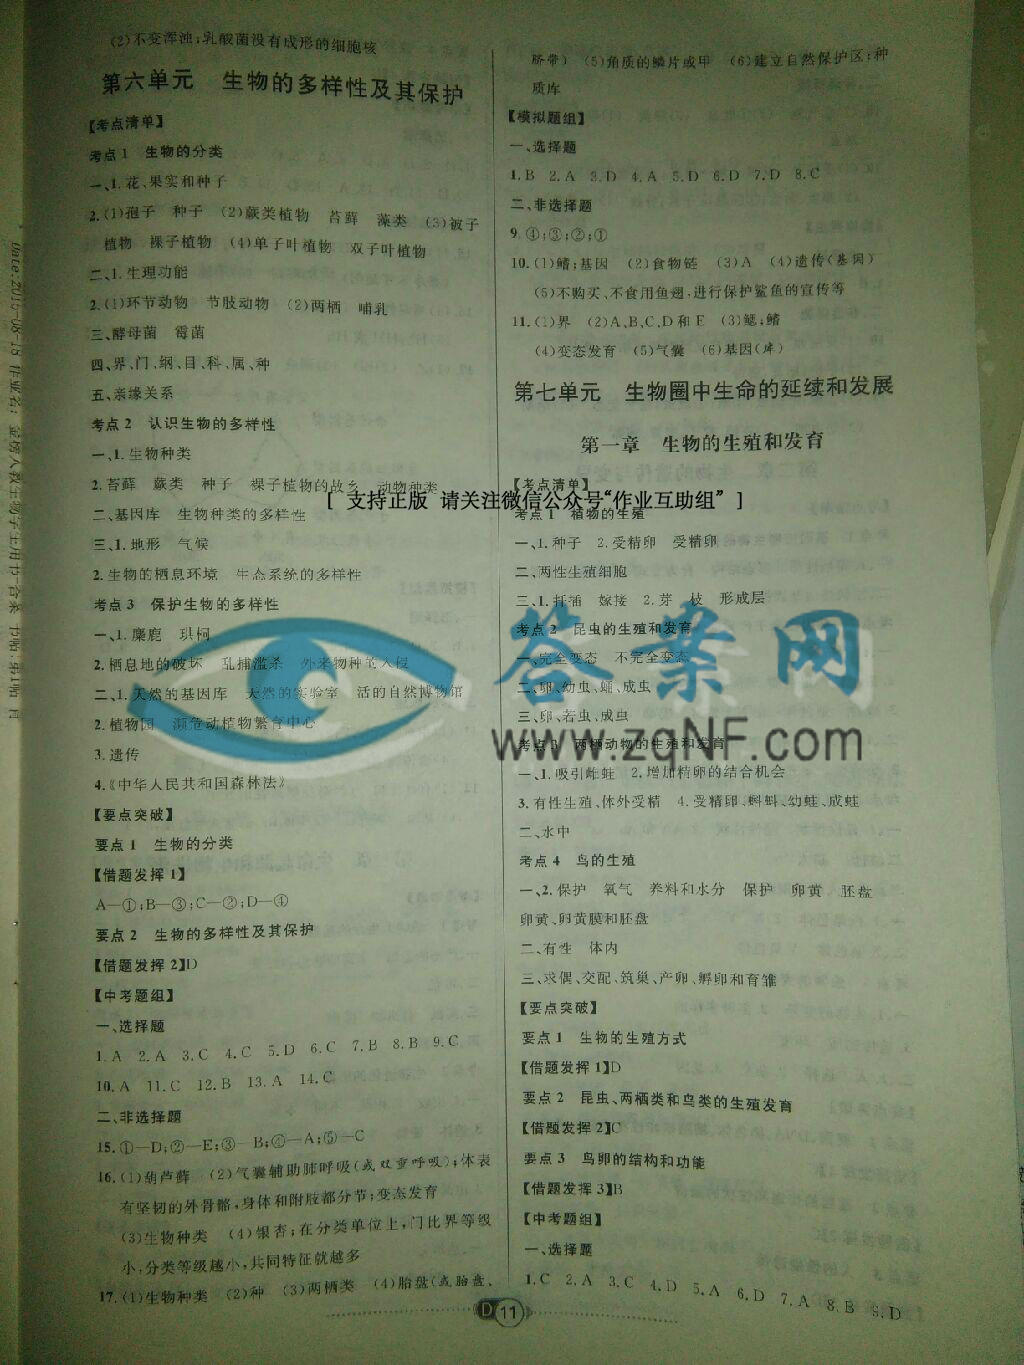 (2)不变浑浊;乳酸菌没有成形的细胞核
第六单元 生物的多样性及其保护
【考点清单】
考点1 生物的分类
一、1.花、果实和种子
2.(1)孢子 种子 (2)蕨类植物 苔藓 藻类 (3)被子
植物 裸子植物 (4)单子叶植物 双子叶植物
二、1.生理功能
2.(1)环节动物 节肢动物 (2)两栖 哺乳
三、酵母菌 霉菌
四、界、门、纲、目、科、属、种
五、亲缘关系
考点2 认识生物的多样性
一、1.生物种类
2.苔藓 蕨类 种子 裸子植物的故乡 动物种类
二、基因库 生物种类的多样性
三、1.地形 气候
2.生物的栖息环境 生态系统的多样性
考点3 保护生物的多样性
一、1.麋鹿 珙桐
2.栖息地的破坏 乱捕滥杀 外来物种的入侵
二、1.天然的基因库 天然的实验室 活的自然博物馆
2.植物园 濒危动植物繁育中心
3.遗传
4.《中华人民共和国森林法》
【要点突破】
要点1 生物的分类
【借题发挥1】
A—①;B—③;C—②;D—④
要点2 生物的多样性及其保护
【借题发挥2】D
【中考题组】
一、选择题
1.A 2.A 3.C 4.C 5.D 6.C 7.B 8.B 9.C
10.A 11.C 12.B 13.A 14.C
二、非选择题
15.①—D;②—E;③—B;④—A;⑤—C
16.(1)葫芦藓 (2)气囊辅助肺呼吸(或双重呼吸);体表
有坚韧的外骨骼,身体和附肢都分节;变态发育
(3)生物种类 (4)银杏;在分类单位上,门比界等级
小,分类等级越小,共同特征就越多
17.(1)生物种类 (2)种 (3)两栖类 (4)胎盘(或胎盘、
脐带) (5)角质的鳞片或甲 (6)建立自然保护区;种
质库
【模拟题组】
一、选择题
1.B 2.A 3.D 4.A 5.D 6.D 7.D 8.C
二、非选择题
9.④;③;②;①
10.(1)鳍;基因 (2)食物链 (3)A (4)遗传(基因)
(5)不购买、不食用鱼翅,进行保护鲨鱼的宣传等
11.(1)界 (2)A、B、C、D和E (3)鳃;鳍
(4)变态发育 (5)气囊 (6)基因(库)
第七单元 生物圈中生命的延续和发展
第一章 生物的生殖和发育
【考点清单】
考点1 植物的生殖
一、1.种子 2.受精卵 受精卵
二、两性生殖细胞
三、1.扦插 嫁接 2.芽 枝 形成层
考点2 昆虫的生殖和发育
一、完全变态 不完全变态
二、卵、幼虫、蛹、成虫
三、卵、若虫、成虫
考点3 两栖动物的生殖和发育
一、1.吸引雌蛙 2.增加精卵的结合机会
3.有性生殖、体外受精 4.受精卵、蝌蚪、幼蛙、成蛙
二、水中
考点4 鸟的生殖
一、2.保护 氧气 养料和水分 保护 卵黄 胚盘
卵黄、卵黄膜和胚盘
二、有性 体内
三、求偶、交配、筑巢、产卵、孵卵和育雏
【要点突破】
要点1 生物的生殖方式
【借题发挥1】D
要点2 昆虫、两栖类和鸟类的生殖发育
【借题发挥2】C
要点3 鸟卵的结构和功能
【借题发挥3】B
【中考题组】
一、选择题
1.C 2.A 3.C 4.D 5.A 6.D 7.A 8.B 9.D
D 11
[ 支持正版 请关注微信公众号“作业互助组” ]
答案网
www.zqNF.com